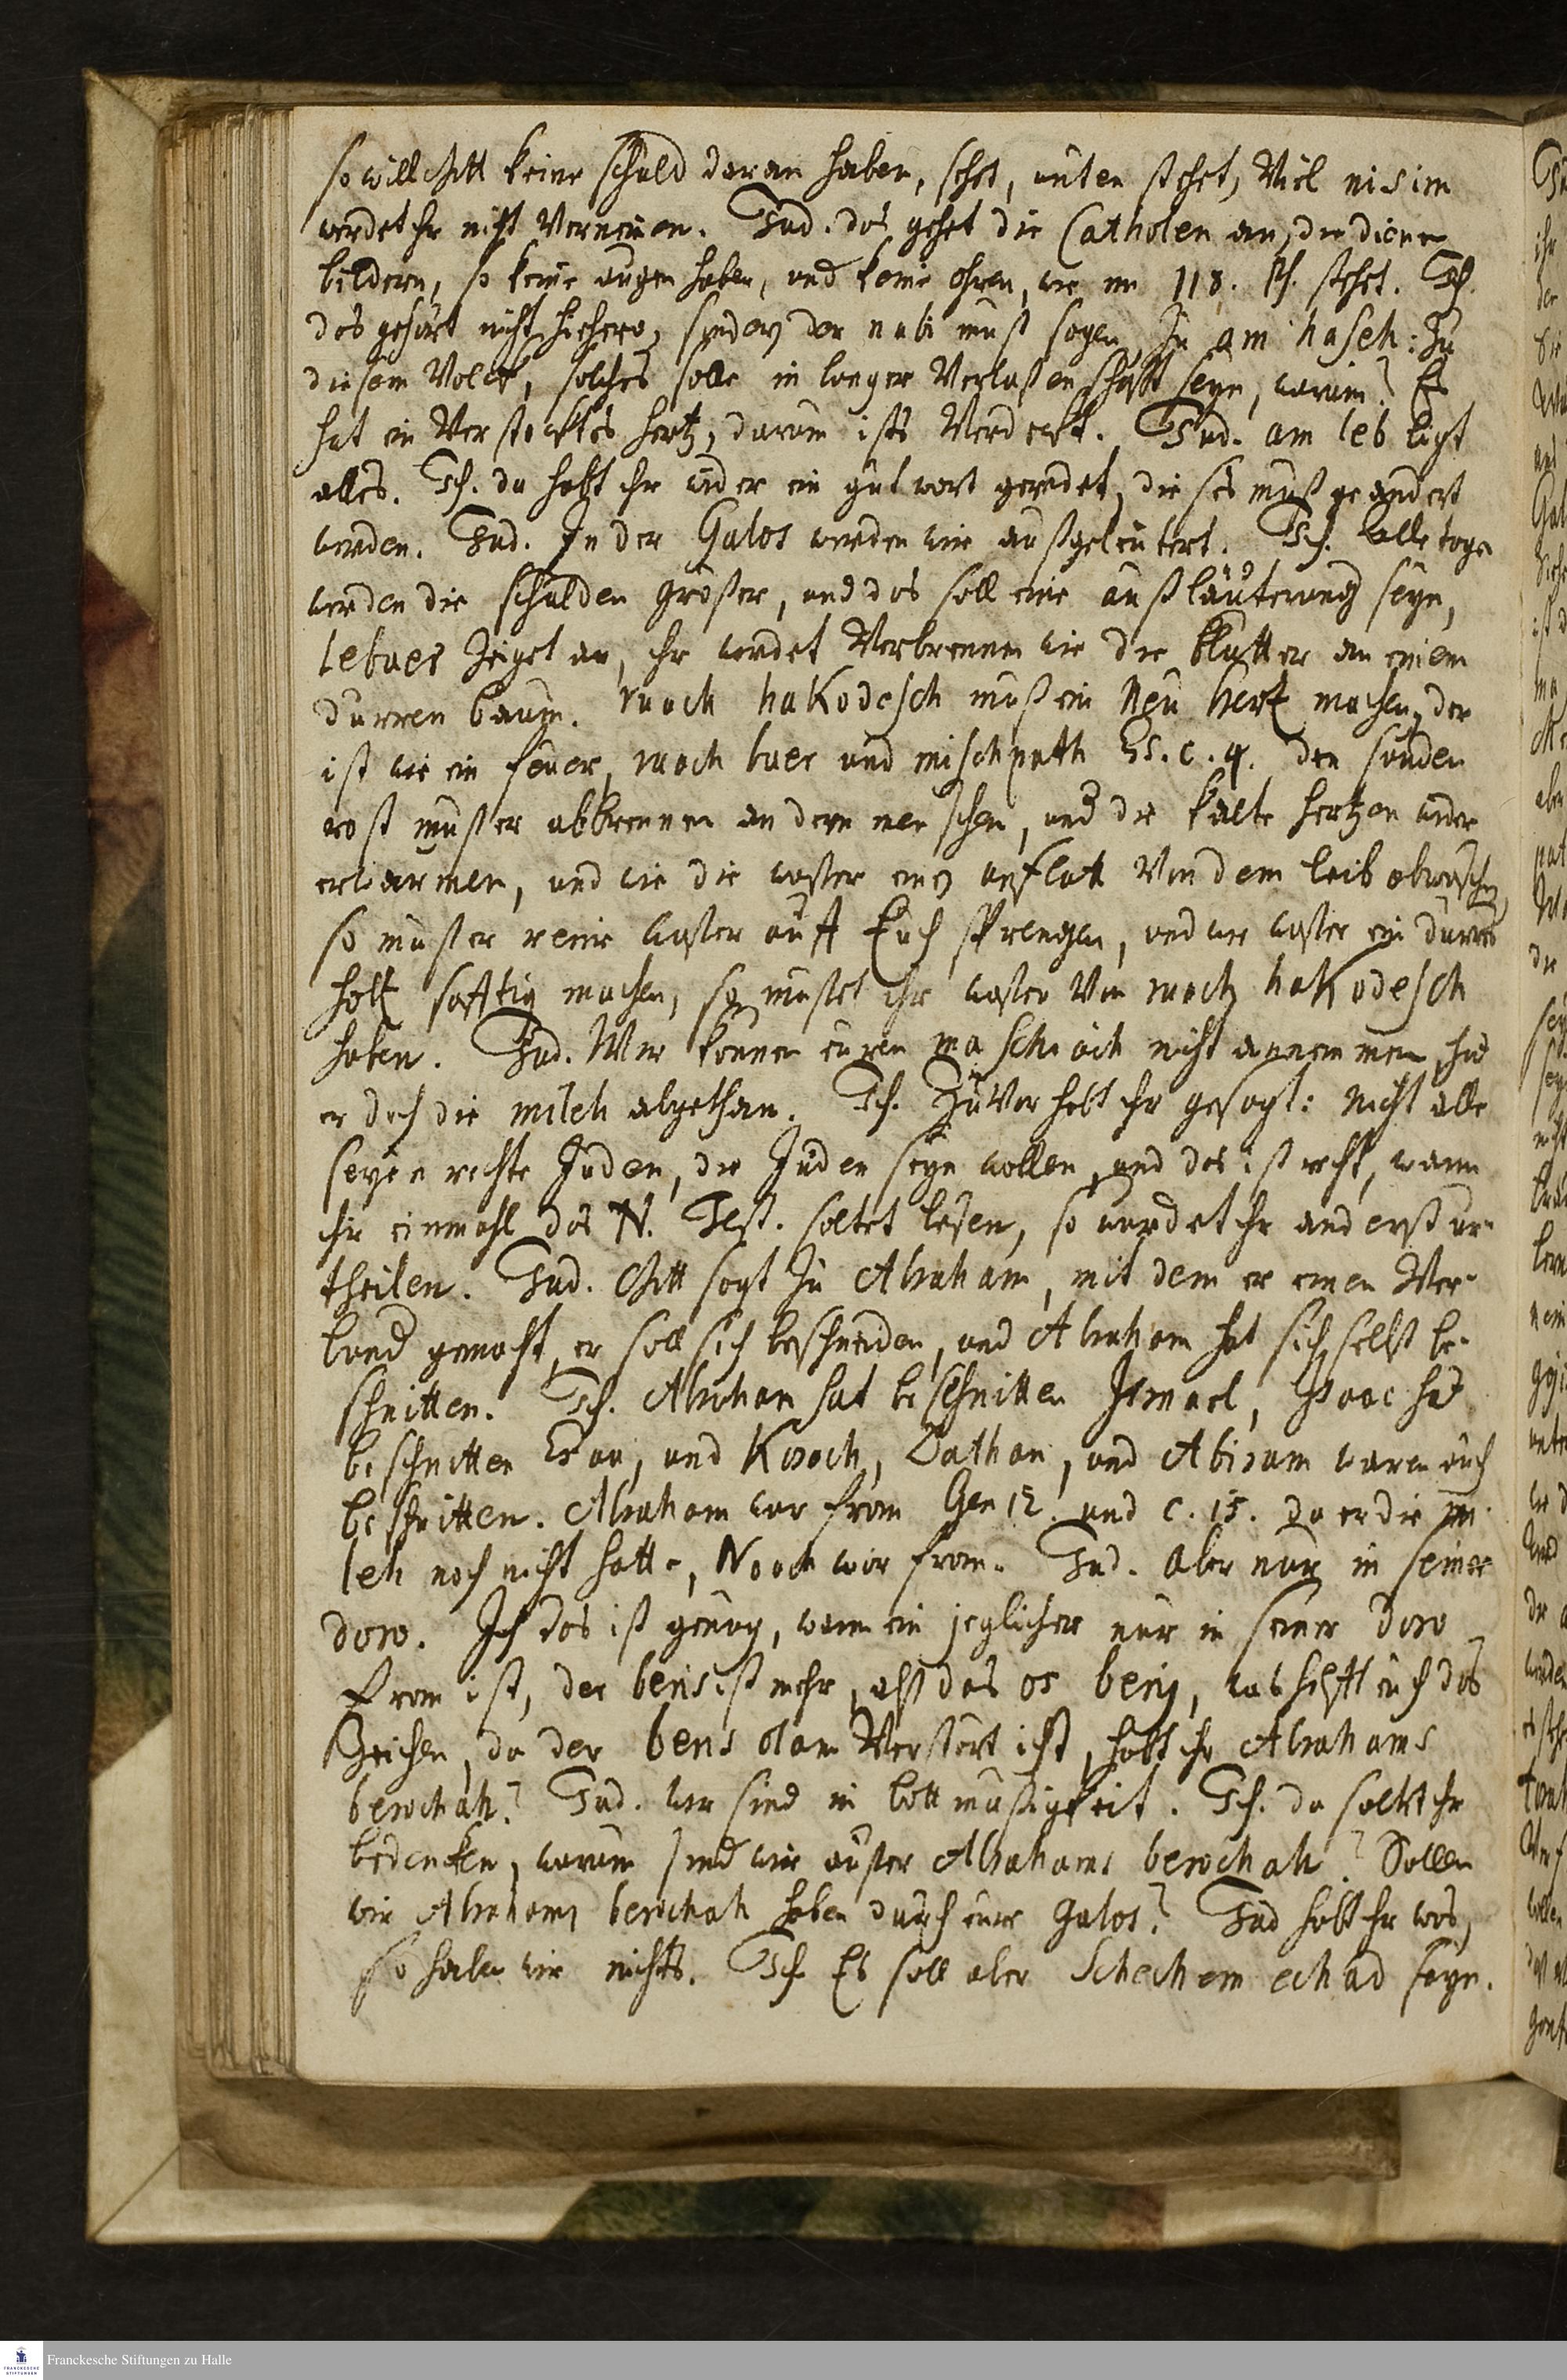 so will Gott keine schuld daran haben, sehet, unten stehet, Viel nisim
werdet ihr nicht Verneinen. Jud. das gehet die Catholen an, die dienen
bildern, so keine augen haben, und keine ohren, wie im 118. Ps. stehet. Ich.
das gehört nicht hiehero, sondern der nabi muß sagen Zu am haseh: Zu
diesem Volck, solches solle in langer Verlaßenschafft seyn, warum? Es
hat ein Verstocktes hertz, darum ists Verdeckt. Jud. am leb ligt
alles. Ich. da habt ihr wider ein gut wort geredet, dieses muß geändert
werden. Jud. In der Galos werden wir außgeleutert. Ich. alle tage
werden die schulden größer, und das soll eine außläuterung seyn,
lebuer Zeiget an, ihr werdet Verbrennen wie die blätter an einem
dürren baum. ruach hakodesch muß ein Neu hertz machen, der
ist wie ein feuer, ruach buer und mischpath Es. c. 4. den sünden
rost muß er abbrennen an dem menschen, und die kalte hertzen wider
erwärmen, und wie die waßer einen unflatt Von dem leib abwaschen,
so muß er reine waßer auff Euch sprengen, und wie waßer ein dürres
holtz safftig machen, so müßet ihr waßer Von ruach hakodesch
haben. Jud. Wir können euren maschiach nicht annemmen, hat
er doch die milah abgethan. Ich. Zuvor habt ihr gesagt: Nicht alle
seyen rechte Juden, die Juden seyn wollen, und das ist recht, wann
ihr einmahl das N. Test. soltet lesen, so würdet ihr anderst ur-
theilen. Jud. Gott sagt Zu Abraham, mit dem er einen Ver-
bund gemacht, er soll sich beschneiden, und Abraham hat sich selbst be-
schnitten. Ich. Abraham hat beschnitten Ismael, Isaac hat
beschnitten Esau, und Korach, Dathan, und Abiram waren auch
beschnitten. Abraham war from Gen 12. und c. 15. da er die mi-
leh noch nicht hatte, Noach war from. Jud. aber nur in seiner
doro. Ich das ist genug, wann ein jeglicher nur in seiner doro
from ist, der beris ist mehr, alß das os beris, was hilfft euch das
Zeichen, da der beris olam Verstört ist, habt ihr Abrahams
berochah? Jud. wir sind in bottmäßigkeit. Ich. da soltet ihr
bedencken, warum sind wir außer Abrahams berochah? Sollen
wir Abrahams berochah haben durch eure galos? Jud habt ihr was,
so haben wir nichts. Ich Es soll aber Schechem echad seyn.
Franckesche Stiftungen zu Halle